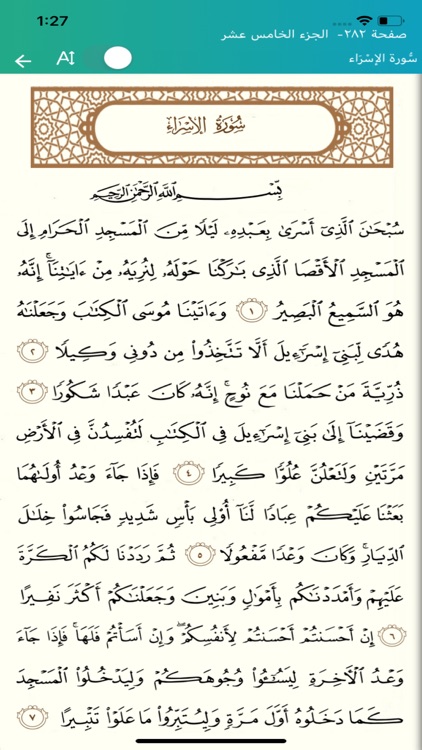 1:27
صفحة ٢٨٢- الجزء الخامس عشر
سُّورة الإِسْرَاء
سُورَةُ الإِسْرَاءِ
بِسْمِ ٱللَّهِ ٱلرَّحْمَٰنِ ٱلرَّحِيمِ
سُبْحَٰنَ ٱلَّذِىٓ أَسْرَىٰ بِعَبْدِهِۦ لَيْلًا مِّنَ ٱلْمَسْجِدِ ٱلْحَرَامِ إِلَى
ٱلْمَسْجِدِ ٱلْأَقْصَا ٱلَّذِى بَٰرَكْنَا حَوْلَهُۥ لِنُرِيَهُۥ مِنْ ءَايَٰتِنَآ ۚ إِنَّهُۥ
هُوَ ٱلسَّمِيعُ ٱلْبَصِيرُ ١ وَءَاتَيْنَا مُوسَى ٱلْكِتَٰبَ وَجَعَلْنَٰهُ
هُدًى لِّبَنِىٓ إِسْرَٰٓءِيلَ أَلَّا تَتَّخِذُوا۟ مِن دُونِى وَكِيلًا ٢
ذُرِّيَّةَ مَنْ حَمَلْنَا مَعَ نُوحٍ ۚ إِنَّهُۥ كَانَ عَبْدًا شَكُورًا ٣
وَقَضَيْنَآ إِلَىٰ بَنِىٓ إِسْرَٰٓءِيلَ فِى ٱلْكِتَٰبِ لَتُفْسِدُنَّ فِى ٱلْأَرْضِ
مَرَّتَيْنِ وَلَتَعْلُنَّ عُلُوًّا كَبِيرًا ٤ فَإِذَا جَآءَ وَعْدُ أُولَىٰهُمَا
بَعَثْنَا عَلَيْكُمْ عِبَادًا لَّنَآ أُو۟لِى بَأْسٍ شَدِيدٍ فَجَاسُوا۟ خِلَٰلَ
ٱلدِّيَارِ ۚ وَكَانَ وَعْدًا مَّفْعُولًا ٥ ثُمَّ رَدَدْنَا لَكُمُ ٱلْكَرَّةَ
عَلَيْهِمْ وَأَمْدَدْنَٰكُم بِأَمْوَٰلٍ وَبَنِينَ وَجَعَلْنَٰكُمْ أَكْثَرَ نَفِيرًا
٦ إِنْ أَحْسَنتُمْ أَحْسَنتُمْ لِأَنفُسِكُمْ ۖ وَإِنْ أَسَأْتُمْ فَلَهَا ۚ فَإِذَا جَآءَ
وَعْدُ ٱلْءَاخِرَةِ لِيَسُۥٓـُٔوا۟ وُجُوهَكُمْ وَلِيَدْخُلُوا۟ ٱلْمَسْجِدَ
كَمَا دَخَلُوهُ أَوَّلَ مَرَّةٍ وَلِيُتَبِّرُوا۟ مَا عَلَوْا۟ تَتْبِيرًا ٧